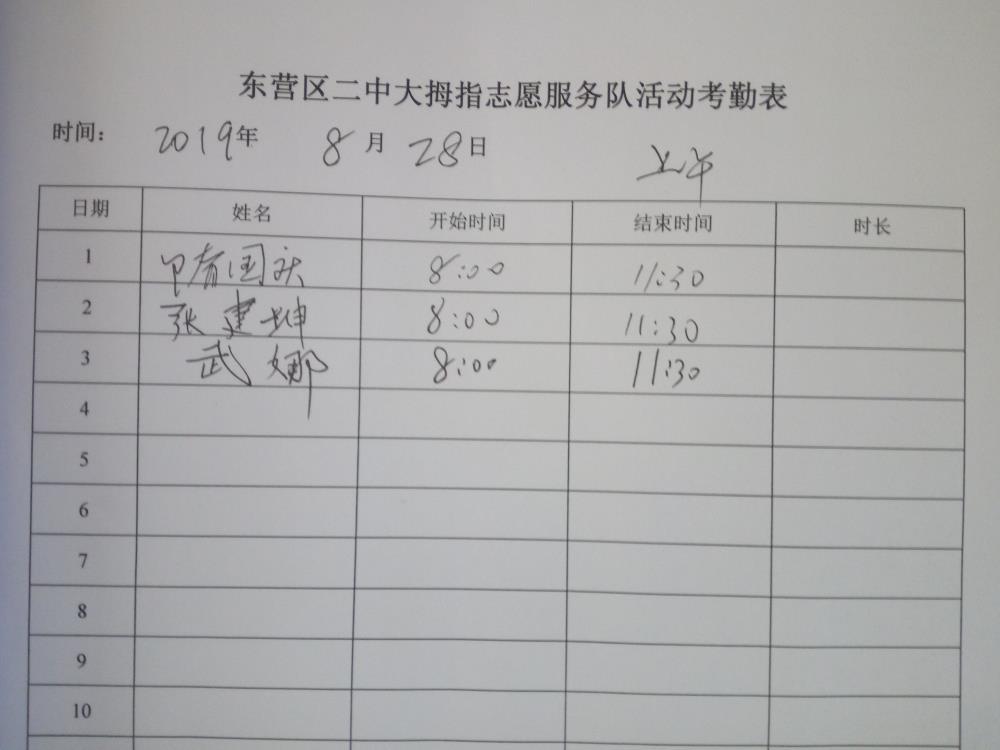 东营区二中大拇指志愿服务队活动考勤表
时间: 2019年 8月28日 上午
日期 姓名 开始时间 结束时间 时长
1 国庆 8:00 11:30
2 张建坤 8:00 11:30
3 武娜 8:00 11:30
4
5
6
7
8
9
10